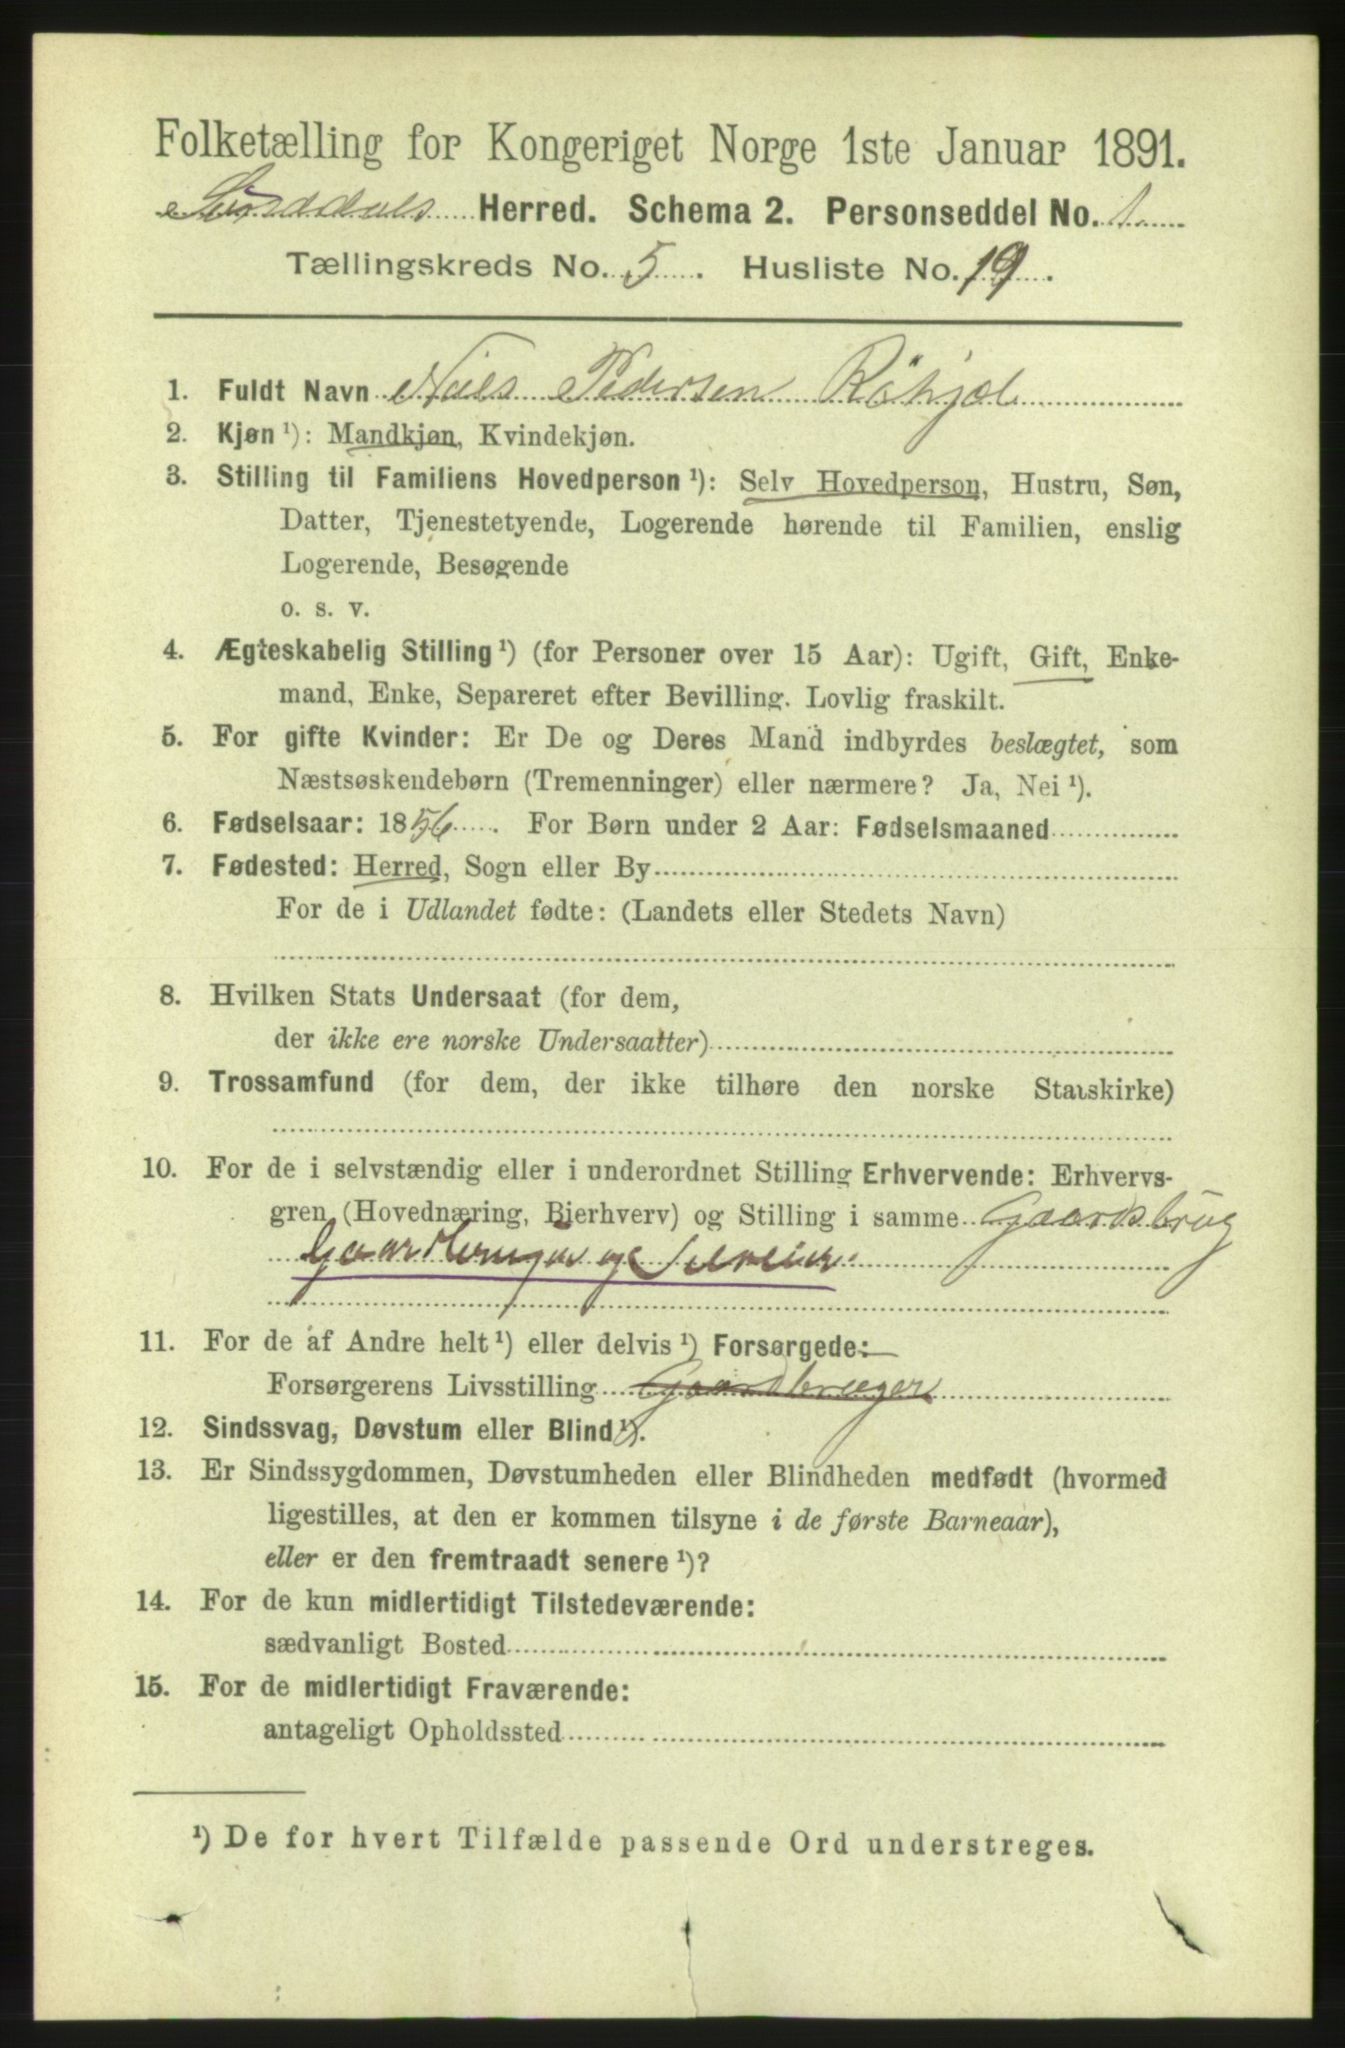 Folketælling for Kongeriget Norge 1ste Januar 1891.
Surddals Herred. Schema 2. Personseddel No. 1
Tællingskreds No. 5. Husliste No. 19.
1. Fuldt Navn Niels Pedersen Röhjel
2. Kjøn ¹): Mandkjøn, Kvindekjøn.
3. Stilling til Familiens Hovedperson ¹): Selv Hovedperson, Hustru, Søn,
Datter, Tjenestetyende, Logerende hørende til Familien, enslig
Logerende, Besøgende
o. s. v.
4. Ægteskabelig Stilling ¹) (for Personer over 15 Aar): Ugift, Gift, Enke-
mand, Enke, Separeret efter Bevilling. Lovlig fraskilt.
5. For gifte Kvinder: Er De og Deres Mand indbyrdes beslægtet, som
Næstsøskendebørn (Tremenninger) eller nærmere? Ja, Nei ¹).
6. Fødselsaar: 1856. For Børn under 2 Aar: Fødselsmaaned
7. Fødested: Herred, Sogn eller By
For de i Udlandet fødte: (Landets eller Stedets Navn)
8. Hvilken Stats Undersaat (for dem,
der ikke ere norske Undersaatter)
9. Trossamfund (for dem, der ikke tilhøre den norske Statskirke)
10. For de i selvstændig eller i underordnet Stilling Erhvervende: Erhvervs-
gren (Hovednæring, Bierhverv) og Stilling i samme Gaardsbrug
Gaardbruger og Selveier.
11. For de af Andre helt ¹) eller delvis ¹) Forsørgede:
Forsørgerens Livsstilling Gaardbruger
12. Sindssvag, Døvstum eller Blind ¹).
13. Er Sindssygdommen, Døvstumheden eller Blindheden medfødt (hvormed
ligestilles, at den er kommen tilsyne i de første Barneaar),
eller er den fremtraadt senere ¹)?
14. For de kun midlertidigt Tilstedeværende:
sædvanligt Bosted
15. For de midlertidigt Fraværende:
antageligt Opholdssted
¹) De for hvert Tilfælde passende Ord understreges.